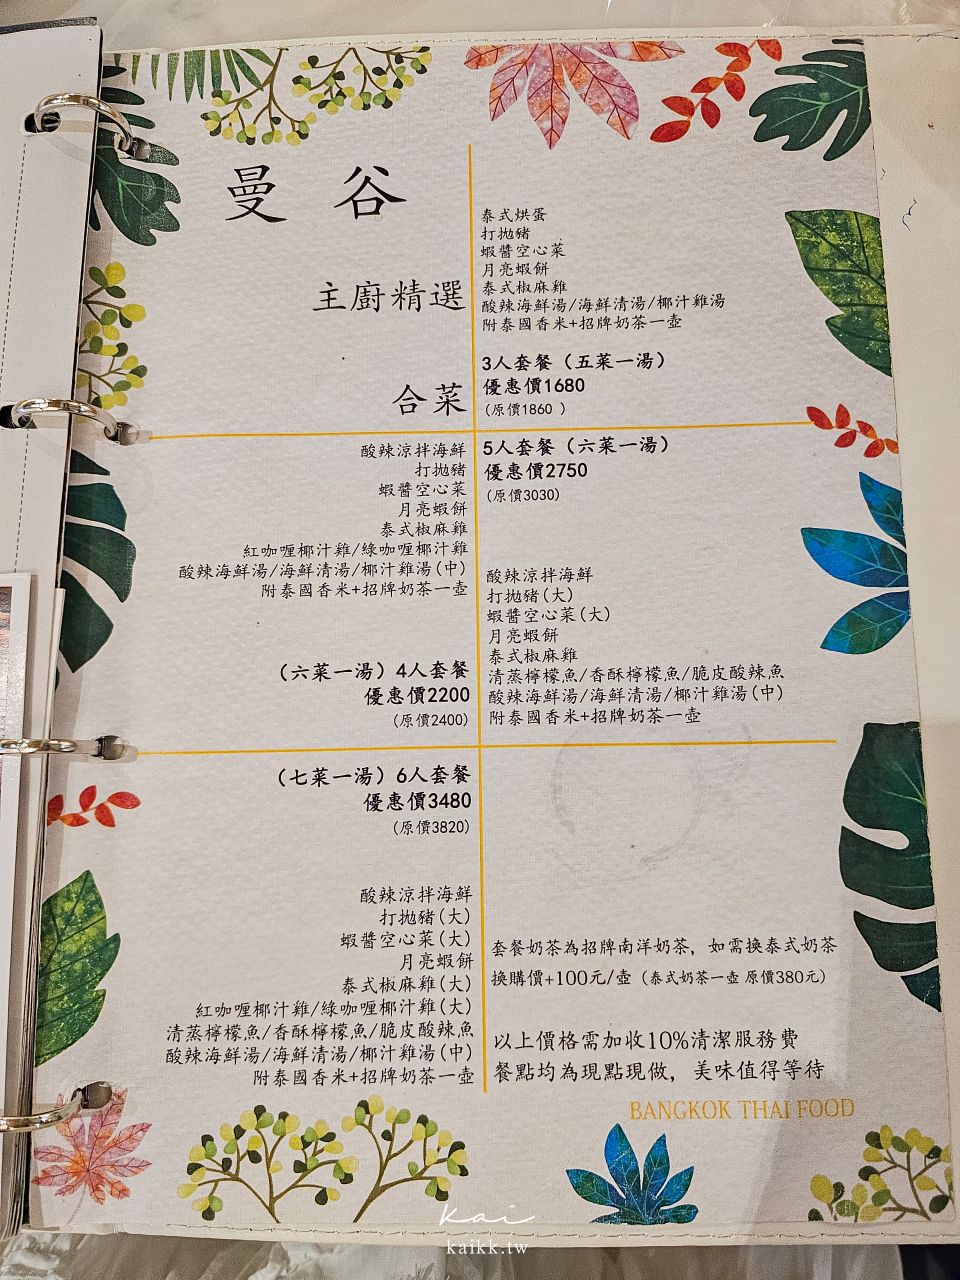 曼谷
主廚精選
合菜
泰式烘蛋
打拋豬
蝦醬空心菜
月亮蝦餅
泰式椒麻雞
酸辣海鮮湯/海鮮清湯/椰汁雞湯
附泰國香米+招牌奶茶一壺
3人套餐（五菜一湯）
優惠價1680
(原價1860 )
酸辣涼拌海鮮
打拋豬
蝦醬空心菜
月亮蝦餅
泰式椒麻雞
紅咖喱椰汁雞/綠咖喱椰汁雞
酸辣海鮮湯/海鮮清湯/椰汁雞湯(中)
附泰國香米+招牌奶茶一壺
（六菜一湯）4人套餐
優惠價2200
(原價2400)
5人套餐（六菜一湯）
優惠價2750
(原價3030)
酸辣涼拌海鮮
打拋豬(大)
蝦醬空心菜(大)
月亮蝦餅
泰式椒麻雞
清蒸檸檬魚/香酥檸檬魚/脆皮酸辣魚
酸辣海鮮湯/海鮮清湯/椰汁雞湯(中)
附泰國香米+招牌奶茶一壺
（七菜一湯）6人套餐
優惠價3480
(原價3820)
酸辣涼拌海鮮
打拋豬(大)
蝦醬空心菜(大)
月亮蝦餅
泰式椒麻雞(大)
紅咖喱椰汁雞/綠咖喱椰汁雞(大)
清蒸檸檬魚/香酥檸檬魚/脆皮酸辣魚
酸辣海鮮湯/海鮮清湯/椰汁雞湯(中)
附泰國香米+招牌奶茶一壺
套餐奶茶為招牌南洋奶茶，如需換泰式奶茶
換購價+100元/壺（泰式奶茶一壺 原價380元）
以上價格需加收10%清潔服務費
餐點均為現點現做，美味值得等待
BANGKOK THAI FOOD
kai
kaikk.tw